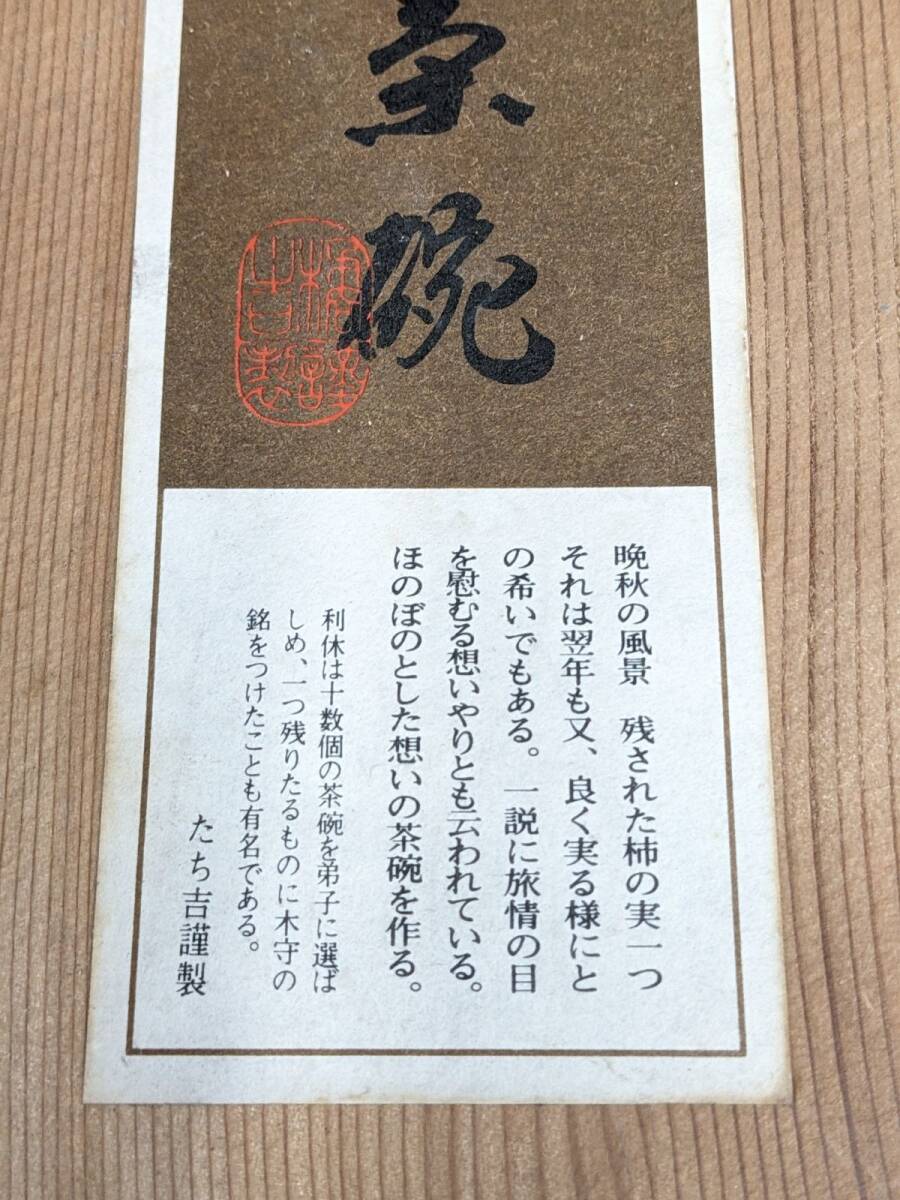 茶
碗
晩秋の風景　残された柿の実一つ
それは翌年も又、良く実る様にと
の希いでもある。一説に旅情の目
を慰むる想いやりとも云われている。
ほのぼのとした想いの茶碗を作る。
利休は十数個の茶碗を弟子に選ば
しめ、一つ残りたるものに木守の
銘をつけたことも有名である。
たち吉謹製